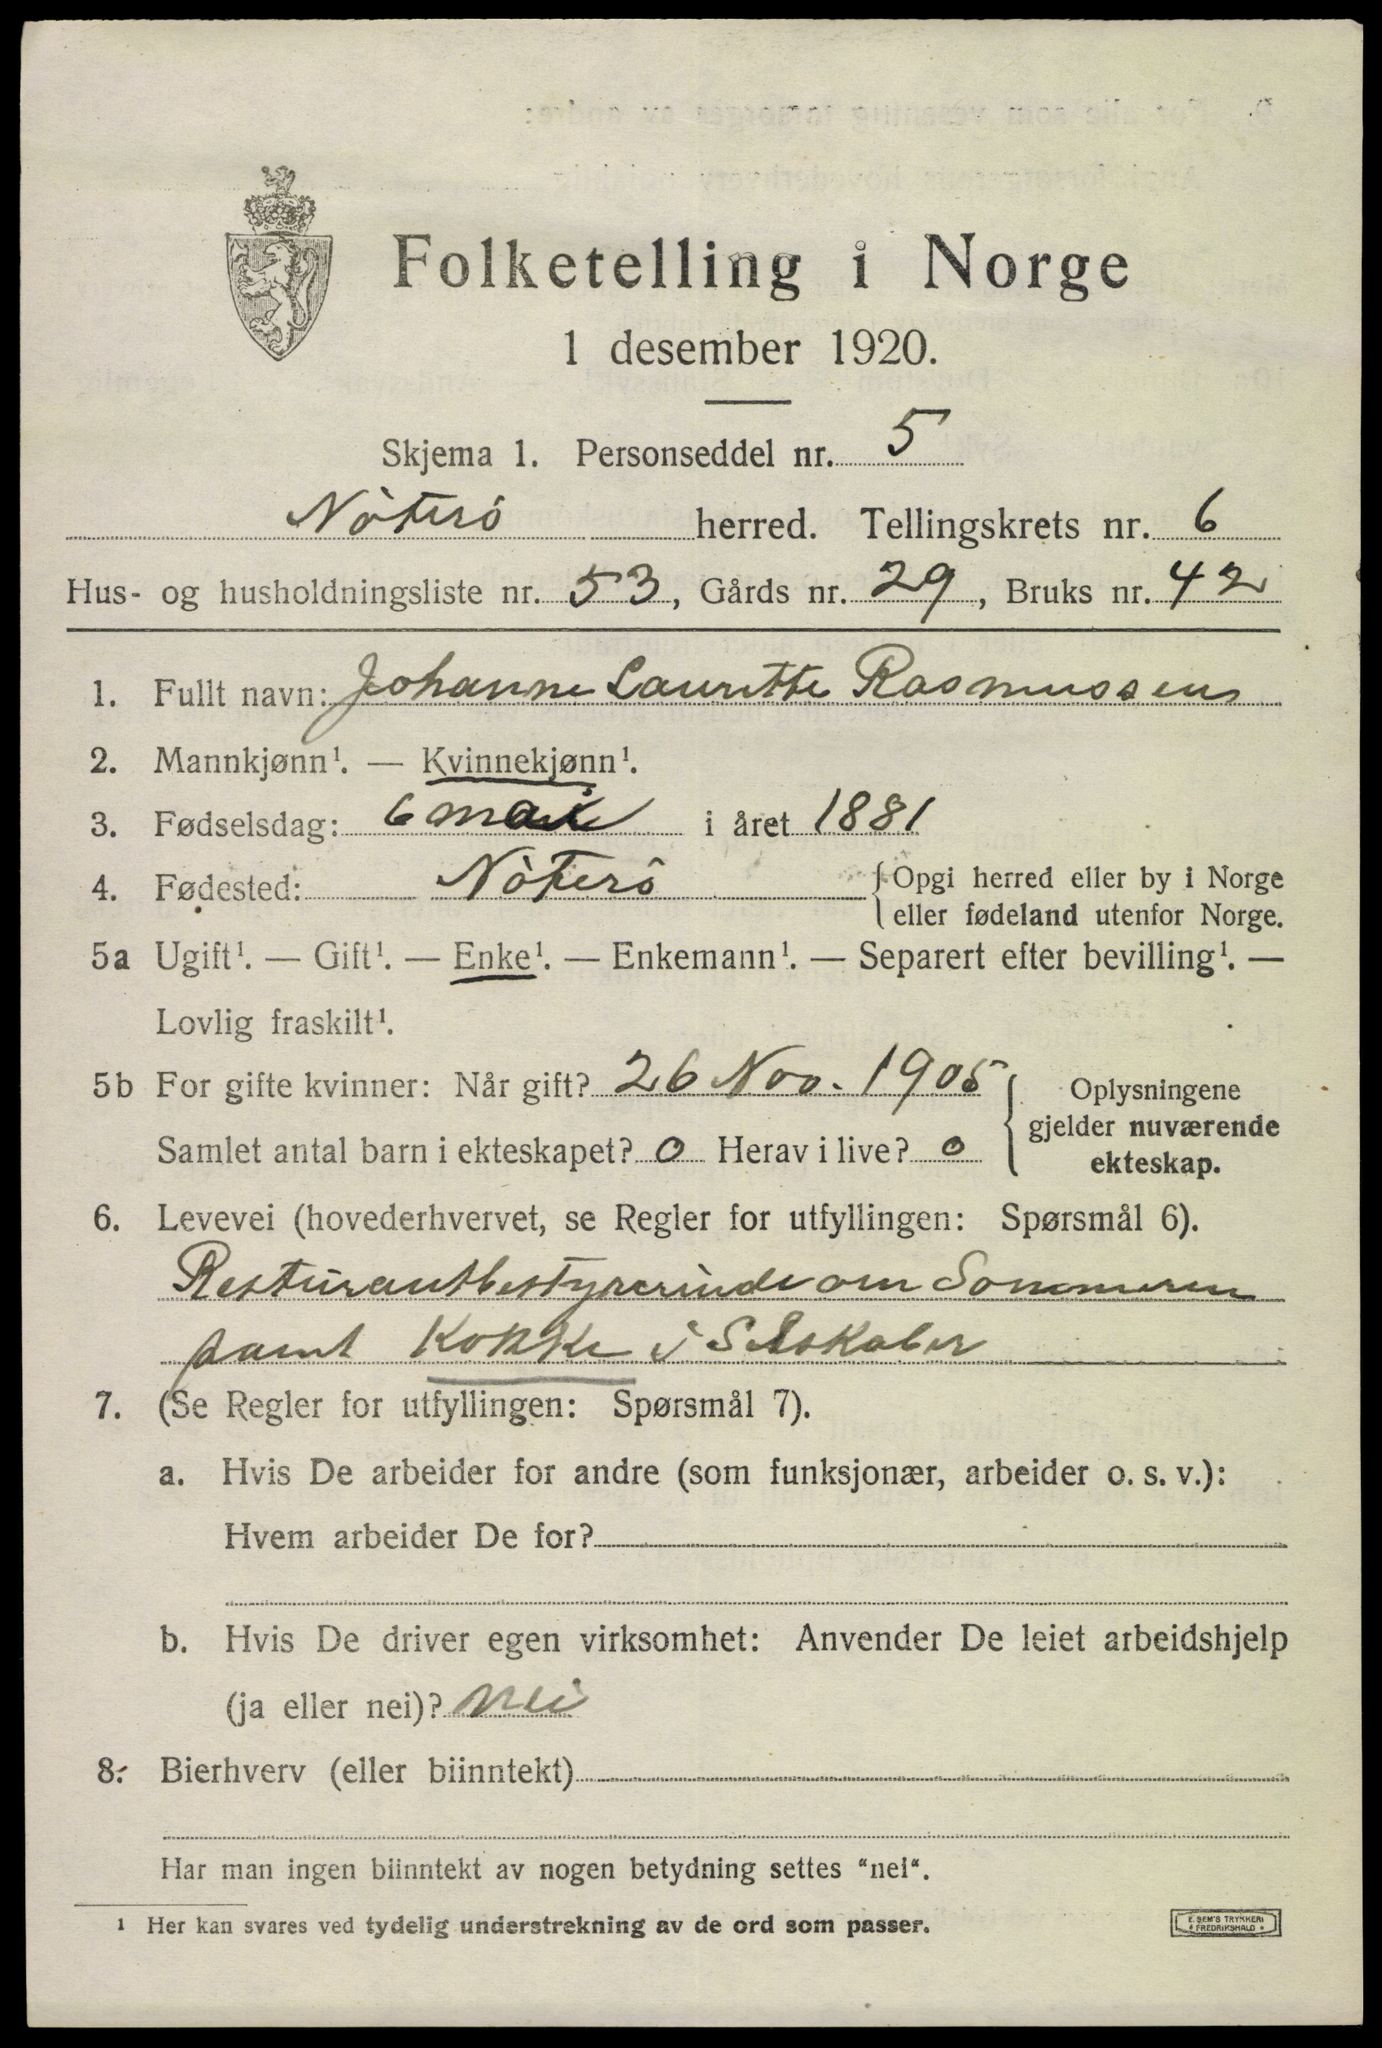 Folketelling i Norge
1 desember 1920.
Skjema 1. Personseddel nr. 5
Nòterò herred. Tellingskrets nr. 6
Hus- og husholdningsliste nr. 53, Gårds nr. 29, Bruks nr. 42
1. Fullt navn: Johanne Lauritte Rasmussen
2. Mannkjønn¹. — Kvinnekjønn¹.
3. Fødselsdag: 6 mai i året 1881
4. Fødested: Nòterò {Opgi herred eller by i Norge
eller fødeland utenfor Norge.
5a Ugift¹. — Gift¹. — Enke¹. — Enkemann¹. — Separert efter bevilling¹. —
Lovlig fraskilt¹.
5b For gifte kvinner: Når gift? 26 Nov. 1905
Samlet antal barn i ekteskapet? 0 Herav i live? 0
Oplysningene
gjelder nuværende
ekteskap.
6. Levevei (hovederhvervet, se Regler for utfyllingen: Spørsmål 6).
Resturantbestyrerinde om Sommeren
samt Kokke i Selskaber
7. (Se Regler for utfyllingen: Spørsmål 7).
a. Hvis De arbeider for andre (som funksjonær, arbeider o. s. v.):
Hvem arbeider De for?
b. Hvis De driver egen virksomhet: Anvender De leiet arbeidshjelp
(ja eller nei)? nei
8. Bierhverv (eller biinntekt)
Har man ingen biinntekt av nogen betydning settes "nei".
¹ Her kan svares ved tydelig understrekning av de ord som passer.
E. SEM'S TRYKKERI
FREDRIKSHALD